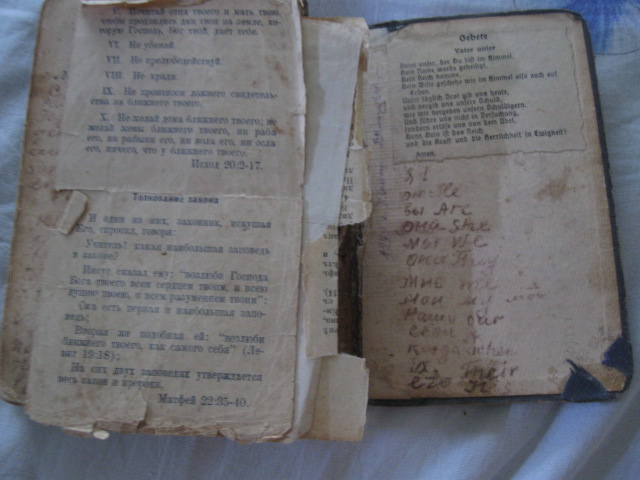 V. Почитай отца твоего и мать твою,
чтобы продлились дни твои на земле, ко-
торую Господь, Бог твой, дает тебе.
VI. Не убивай.
VII. Не прелюбодействуй.
VIII. Не кради.
IX. Не произноси ложного свидетель-
ства на ближнего твоего.
X. Не желай дома ближнего твоего; не
желай жены ближнего твоего, ни раба
его, ни рабыни его, ни вола его, ни осла
его, ничего, что у ближнего твоего.
Исход 20:2-17.
Толкование закона
И один из них, законник, искушая
Его, спросил, говоря:
Учитель! какая наибольшая заповедь
в законе?
Иисус сказал ему: "возлюби Господа
Бога твоего всем сердцем твоим, и всею
душею твоею, и всем разумением твоим":
сия есть первая и наибольшая запо-
ведь;
Вторая же подобная ей: "возлюби
ближнего твоего, как самого себя" (Ле-
вит 19:18);
На сих двух заповедях утверждается
весь закон и пророки.
Матфей 22:35-40.
Gebete
Vater unser
Vater unser, der Du bist im Himmel.
Dein Name werde geheiligt.
Dein Reich komme.
Dein Wille geschehe wie im Himmel also auch auf
Erden.
Unser täglich Brot gib uns heute,
und vergib uns unsere Schuld,
wie wir vergeben unsern Schuldigern.
Und führe uns nicht in Versuchung,
sondern erlöse uns von dem Übel.
Denn Dein ist das Reich
und die Kraft und die Herrlichkeit in Ewigkeit!
Amen.
Я I
он He
вы Are
она She
мы We
они They
мне me
мои my
Наши our
свои
когда when
их Their
его